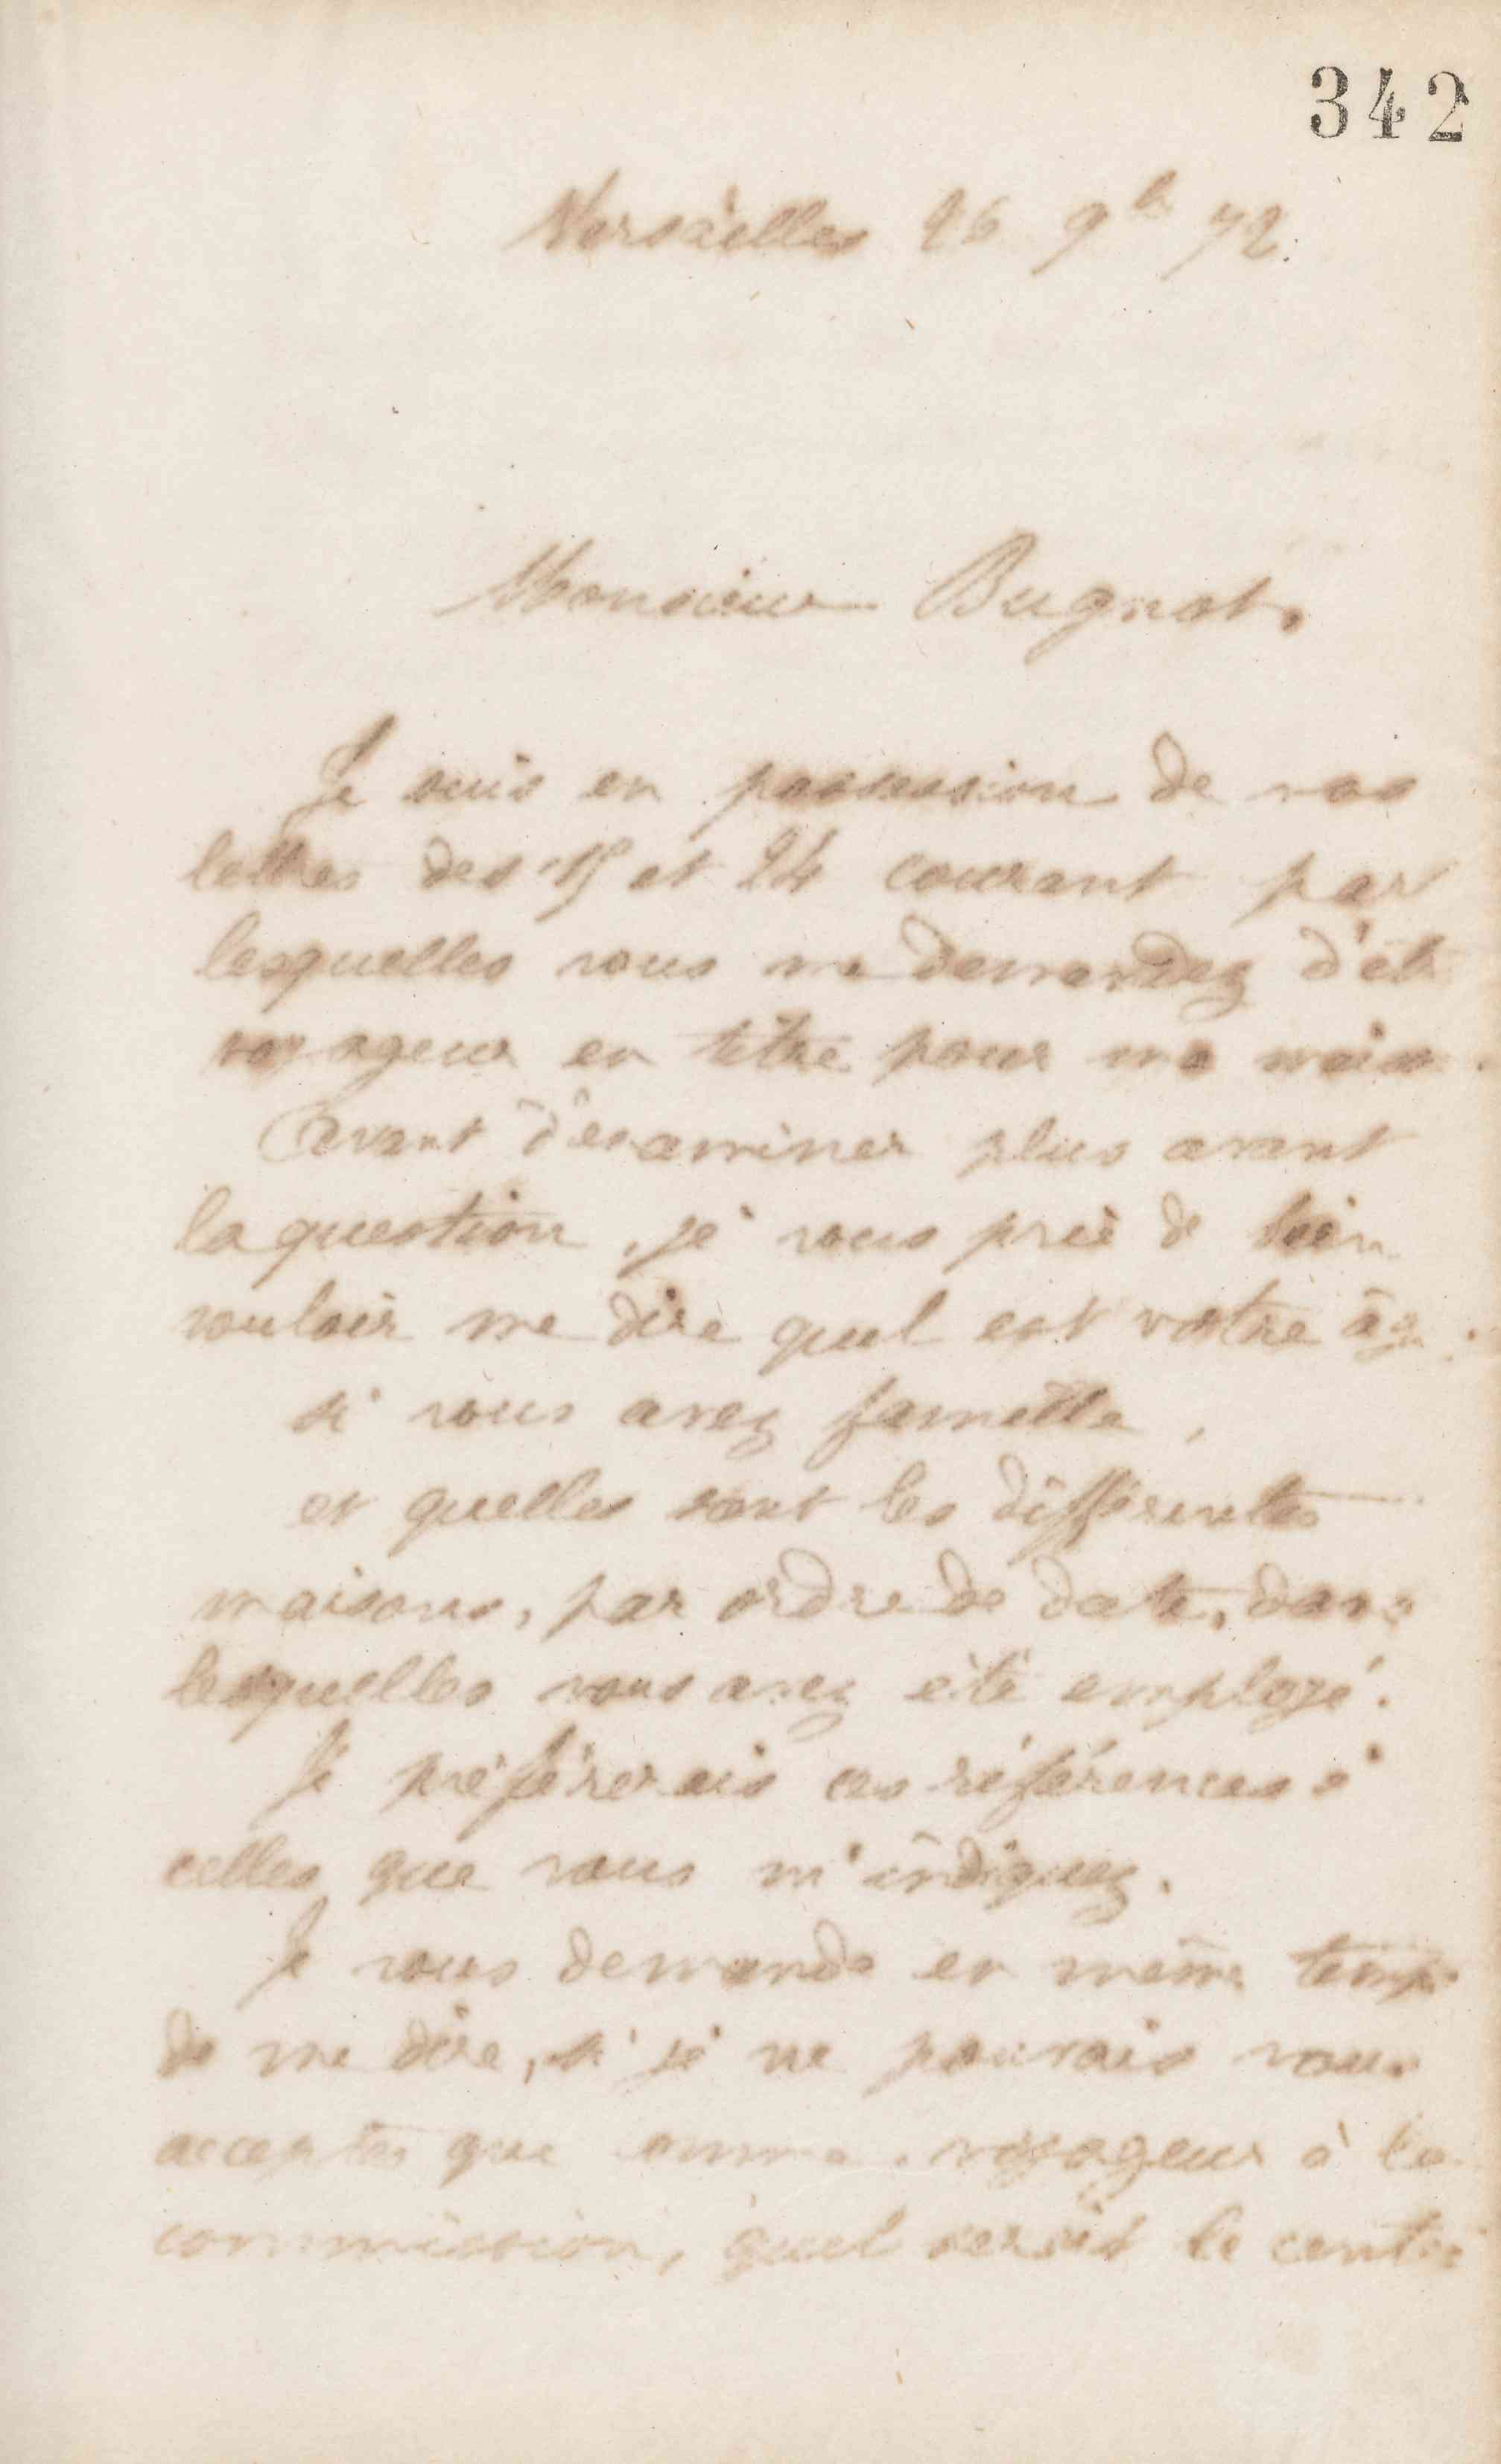 342
Versailles 26 9b 72.
Monsieur Bugnot,
Je suis en possession de vos
lettres des 15 et 24 courant par
lesquelles vous me demandez d'être
voyageur en titre pour ma
Avant d'examiner plus avant
la question, je vous prie de bien
vouloir me dire quel est votre âge
si vous avez famille,
et quelles sont les différentes
maisons, par ordre de date, dans
lesquelles vous avez été employé.
Je préférerais ces références à
celles que vous m'indiquez.
Je vous demande en même temps
de me dire, si je ne pouvais vous
accepter que comme voyageur à la
commission, quel serait le centre